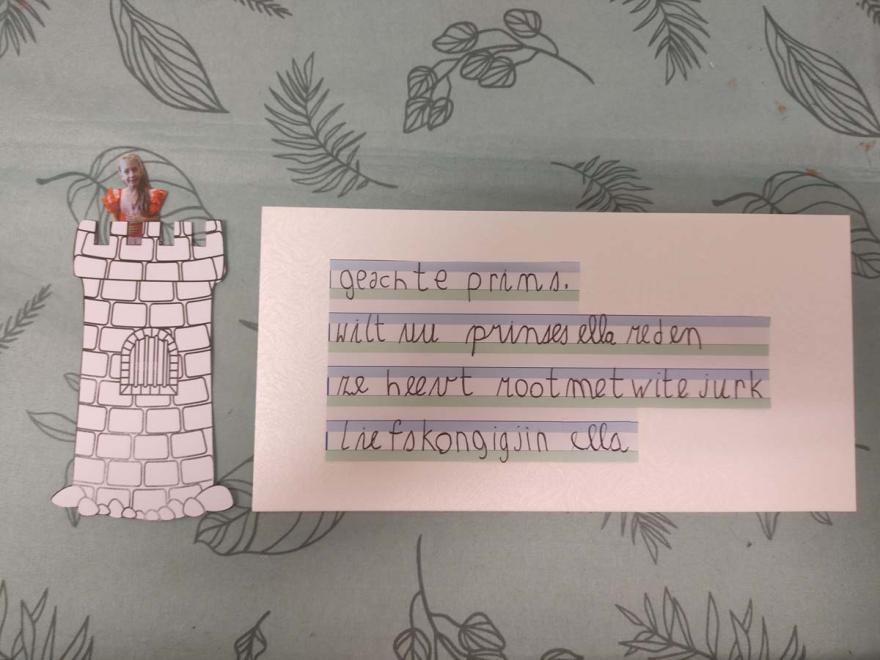 geachte prins.
wilt uu prinses ella reden
ze heevt rootmet wite jurk
liefskongigjin ella